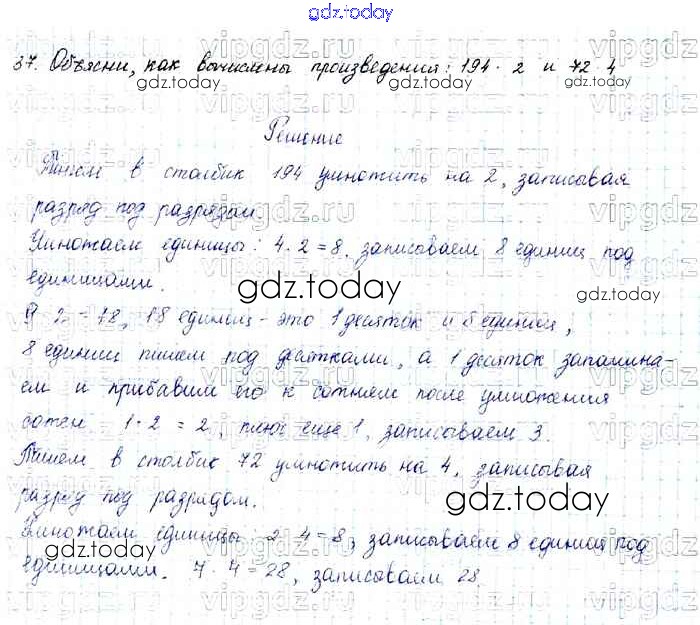 gdz.today
37. Объясни, как вычислены произведения: 194 · 2 и 72 · 4
gdz.today gdz.today gdz.today
Решение
Пишем в столбик 194 умножить на 2, записывая
разряд под разрядом.
gdz.today gdz.today
Умножаем единицы: 4 · 2 = 8, записываем 8 единиц под
единицами.
gdz.today gdz.today
9 · 2 = 18, 18 единиц - это 1 десяток и 8 единиц,
8 единиц пишем под десятками, а 1 десяток запомина-
ем и прибавим его к сотням после умножения
сотен 1 · 2 = 2, плюс еще 1, записываем 3.
Пишем в столбик 72 умножить на 4, записывая
разряд под разрядом.
gdz.today
Умножаем единицы 2 · 4 = 8, записываем 8 единиц под
gdz.today gdz.today
единицами. 7 · 4 = 28, записываем 28.
gdz.today